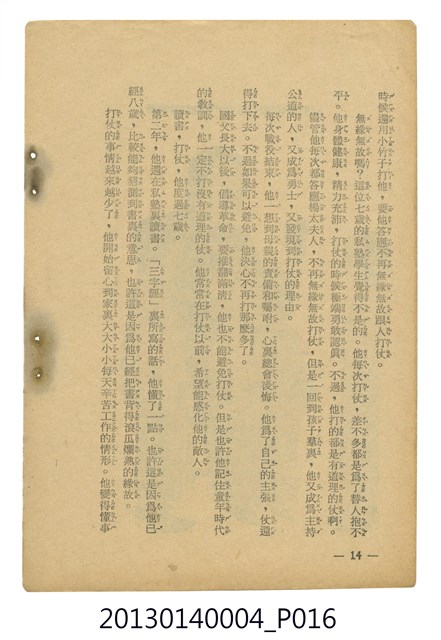 時候還用小竹子打他，要他答應不再無緣無故跟人打仗。
無緣無故嗎？這位七歲的私塾學生覺得不是的。他每次打仗，差不多都是爲了替人抱不
平。他身體健康，精力充沛，打仗的時候極端勇敢認真。不過，他打的都是有道理的仗啊。
儘管他每次都答應楊太夫人，不再無緣無故打仗，但是一回到孩子羣裏，他又成爲主持
公道的人，又成爲勇士，又發現到打仗的理由。
每次戰役結束，他一想到母親的責備和囑咐，心裏總會後悔。他爲了自己的主張，仗還
得打下去。不過如果可以避免，他決心不再打那麼多了。
國父長大以後，倡導革命，要推翻滿清，他也不能避免打仗。但是也許他記住童年時代
的教訓，他一定不打沒有道理的仗。他常常在打仗以前，希望能感化他的敵人。
讀書，打仗，他度過七歲。
第二年，他還在私塾裏讀書。「三字經」裏所寫的話，他懂了一點。也許這是因爲他已
經八歲，比較能夠猜測到書裏的意思，也許這是因爲他已經把書背得滾瓜爛熟的緣故。
打仗的事情越來越少了，他開始留心到家裏大大小小每天辛苦工作的情形。他變得懂事
— 14 —
20130140004_P016